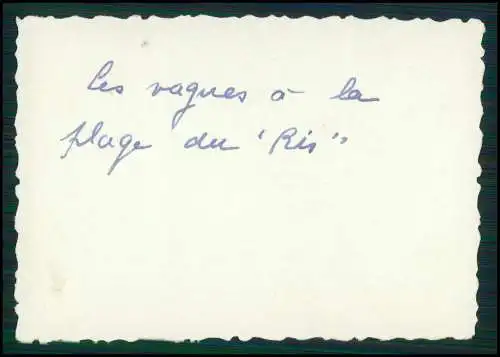 Les vagues à la
plage du "Ris"